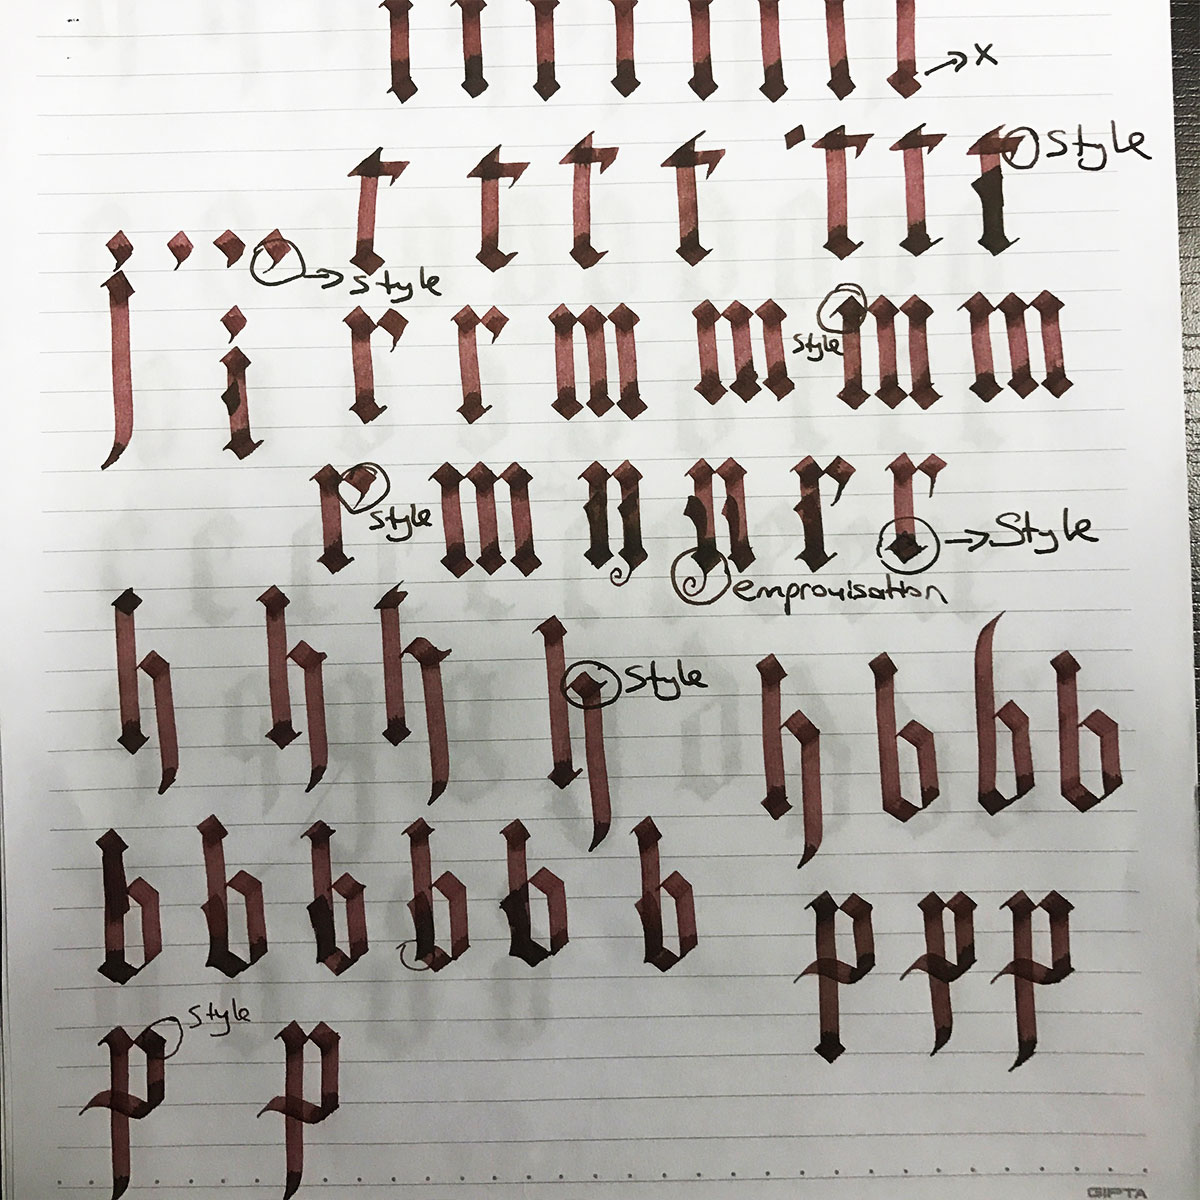 ı ı ı ı ı ı ı ı → x
t t t t t t t Style
j → style
i r r m m style m m
r style m n n r r → Style
emprovisation
h h h h Style h b b b
b b b b b b p p p
p style p
GIPTA